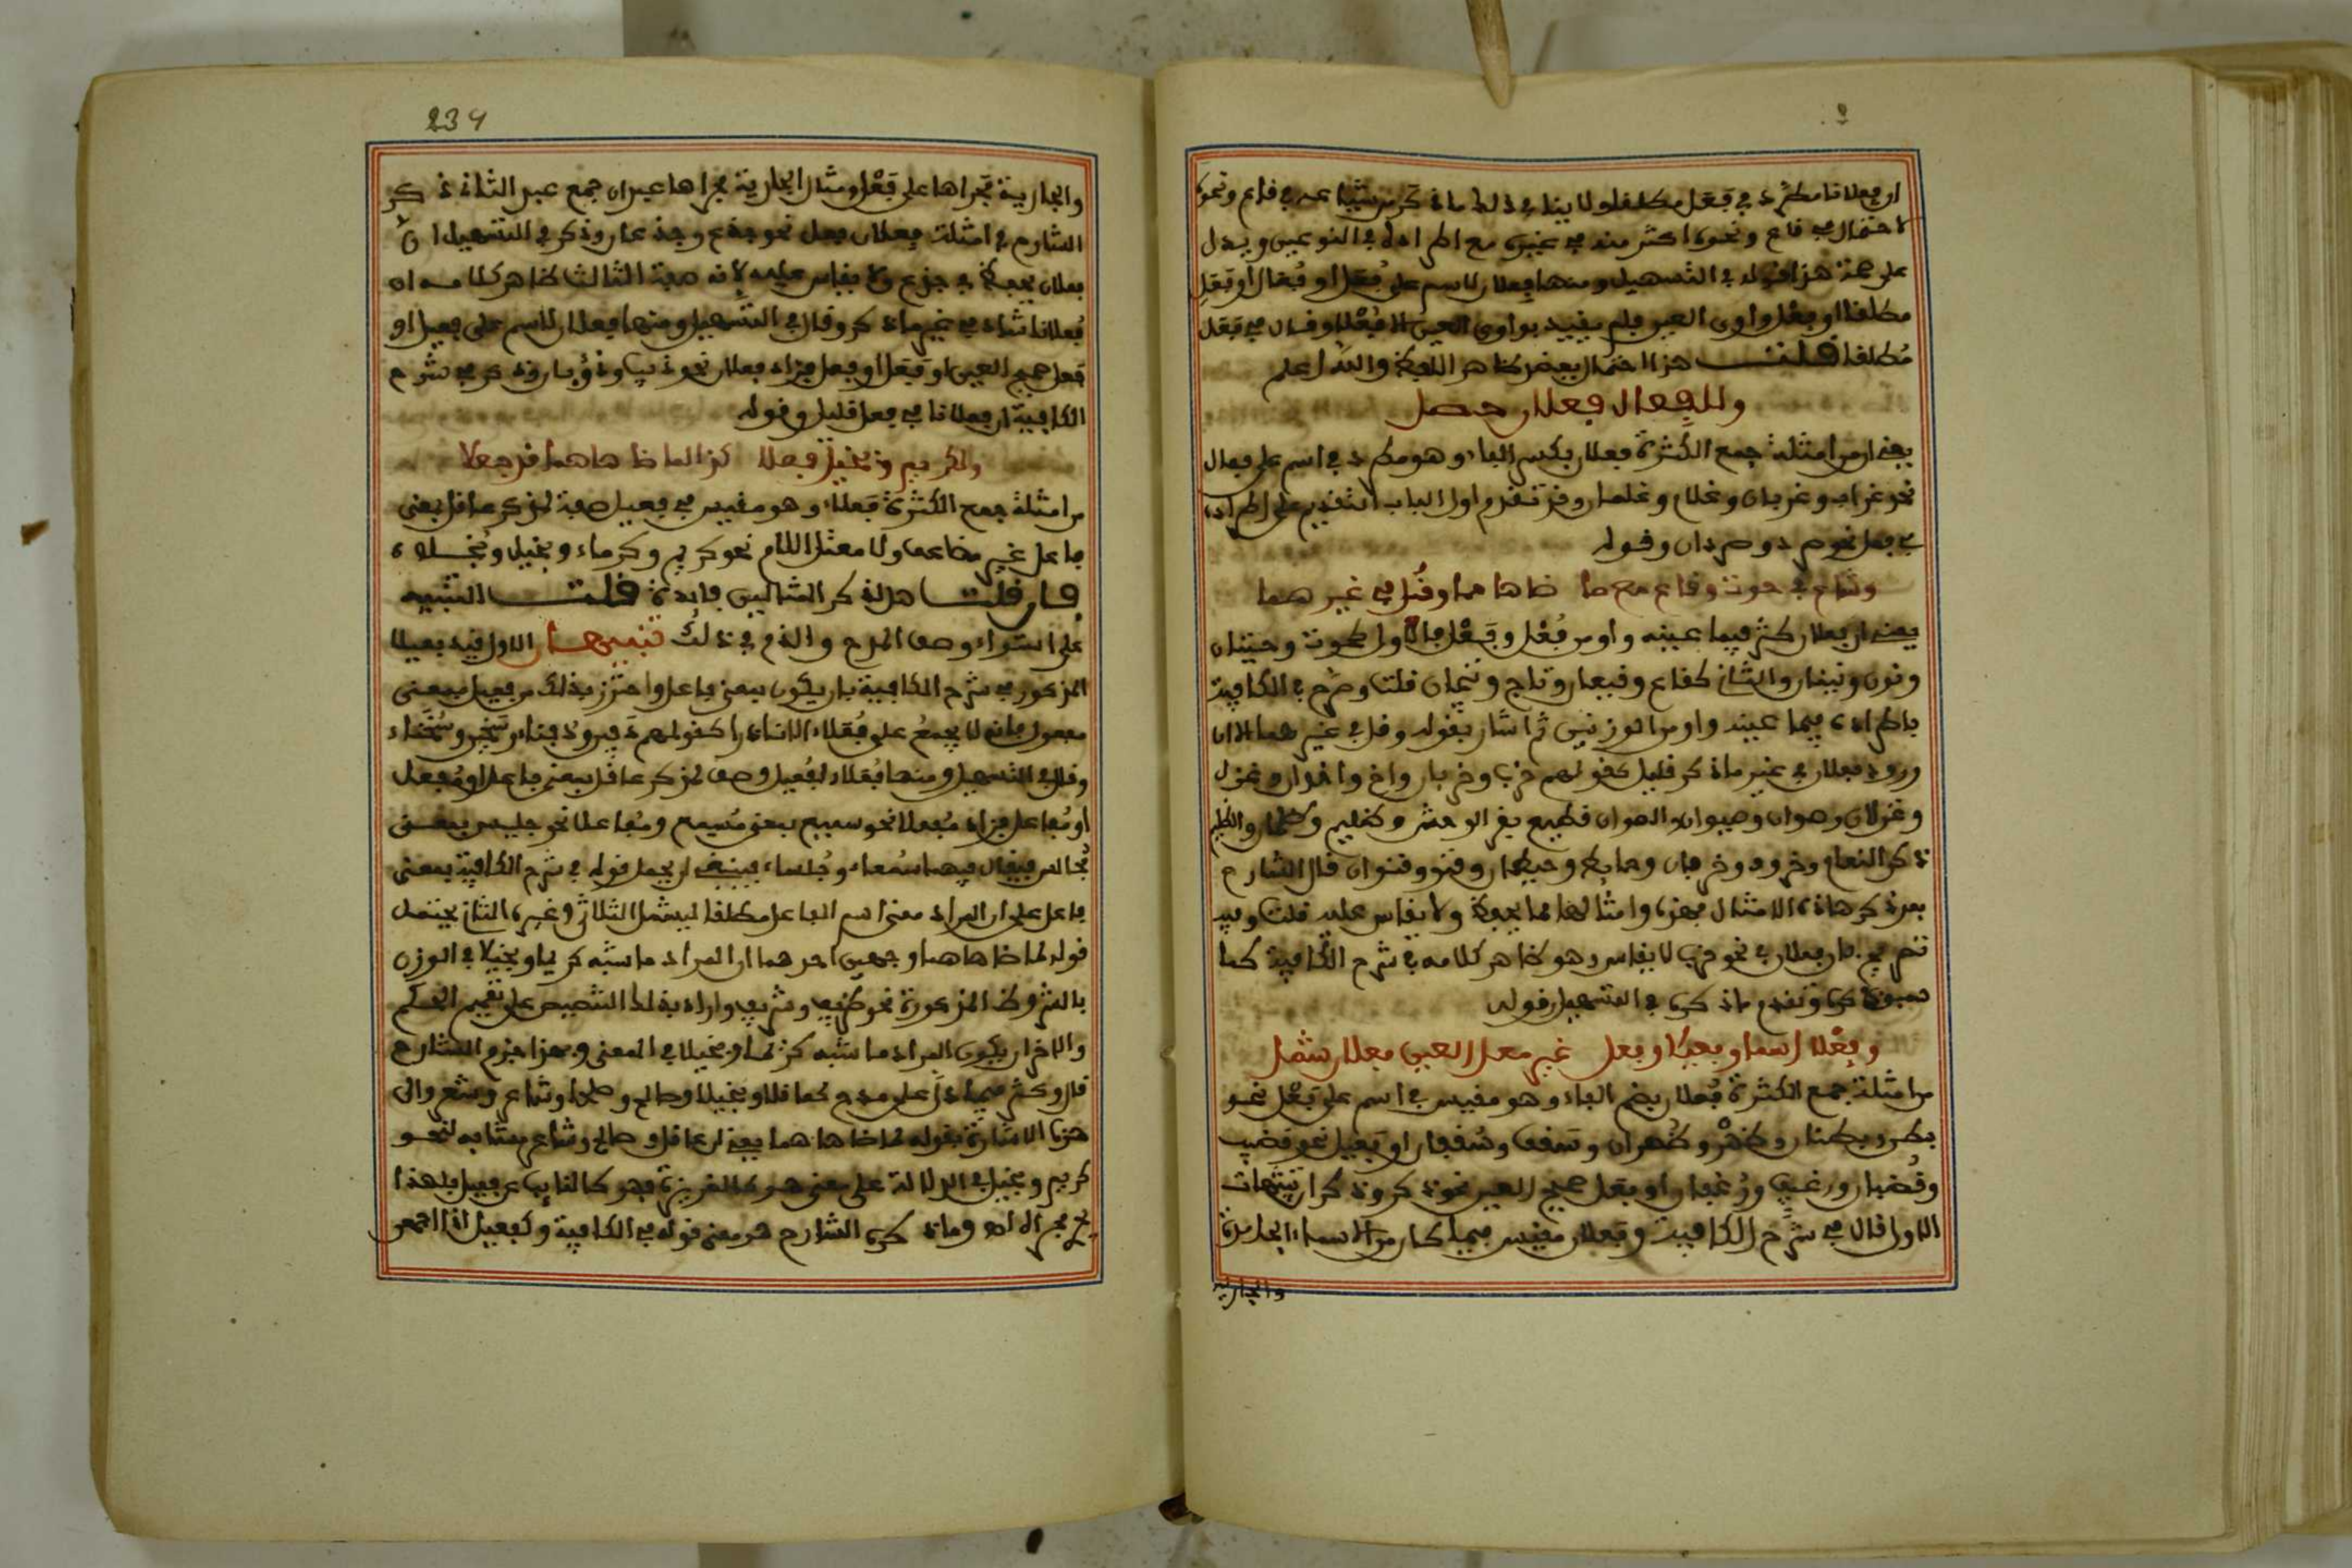 او فعلانا مطرد في فعل مطلقا ولا ينافي ذلك ماذكر من شياعه في قاع ونحوه
لاحتمال في قاع ونحوه اكثر منه في غيره مع اطراده في النوعين ويدل
على صحة هذا قوله في التسهيل ومنها فعلان لاسم على فعل او فعال او فعل
مطلقا او فعل واوي العين فلم يقيد بواوي العين الا فعلا وقال في فعل
مطلقا قلت هذا احتمال يعضده ظاهر اللفظ والله اعلم
وللفعال فعلان حصل
يعني ان من امثلة جمع الكثرة فعلان بكسر الفاء وهو مطرد في اسم على فعال
نحو غراب وغربان وغلام وغلمان وقد تقدم اول الباب التنبيه على اطراده
في فعل نحو صرد وصردان وقوله
وشاع في حوت وقاع مع ما ضاهاهما وقل في غيرهما
يعني ان فعلان كثر فيما عينه واو من فعل وفعل فالاول كحوت وحيتان
ونون ونينان والثاني كقاع وقيعان وتاج وتيجان قلت وصرح في الكافية
باطراده فيما عينه واو من الوزنين ثم اشار بقوله وقل في غيرهما الا ان
ورود فعلان في غير ماذكر قليل كقولهم خرب وخربان واخ واخوان وغزل
وغزلان وصوان وصيوان والصوان قطيع بقر الوحش وكظليم وظلمان والظليم
ذكر النعام وخروف وخرفان وحايط وحيطان وقنو وقنوان قال الشارح
بعد ذكر هاذه الامثال فهذه وامثالها مما يحفظ ولا يقاس عليه قلت وفيه
تصريح بان فعلان في نحو خرب لا يقاس وهو ظاهر كلامه في شرح الكافية كما
وتقدم ماذكره في التسهيل قوله
وفعلا اسما وفعيلا وفعل غير معل العين فعلان شمل
من امثلة جمع الكثرة فعلان بضم الفاء وهو مقيس في اسم على فعل نحو
بطن وبطنان وظهر وظهران وسقف وسقفان او فعيل نحو قضيب
وقضبان ورغيف ورغفان او فعل صحيح العين نحو ذكر وذكران تنبيهات
الاول قال في شرح الكافية وفعلان مقيس فيما كان من الاسماء الجامدة
والجارية
239
والجارية مجراها على فعل ومثال الجارية مجراها عبدان جمع عبد الثاني ذكر
الشارح في امثلة فعلان فعل نحو جذع وجذعان وذكر في التسهيل ان
فعلان يحفظ في جذع ولا يقاس عليه لانه صفة الثالث ظاهر كلامه ان
فعلانا شاذ في غير ماذكر وقال في التسهيل ومنها فعلان لاسم على فعيل او
فعل صحيح العين او فعل او فعل فزاد فعلان نحو ذيب وذؤبان وذكر في شرح
الكافية ان فعلانا في فعل قليل وقوله
ولكريم وبخيل فعلا كذا لما ضاهاهما قد جعلا
من امثلة جمع الكثرة فعلاء وهو مقيس في فعيل صفة لمذكر عاقل بمعنى
فاعل غير مضاعف ولا معتل اللام نحو كريم وكرماء وبخيل وبخلاء
فان قلت هل لذكر المثالين فايدة قلت التنبيه
على استواء وصف المدح والذم في ذلك تنبيهات الاول قيد فعيلا
المذكور في شرح الكافية بان يكون بمعنى فاعل واحترز بذلك من فعيل بمعنى
مفعول فانه لا يجمع على فعلاء الا نادرا كقولهم دفين ودفناء وسجين وسجناء
وقال في التسهيل ومنها فعلاء لفعيل وصف لمذكر عاقل بمعنى فاعل او مفعل
او مفاعل فزاد مفعلا نحو سميع بمعنى مسمع ومفاعلا نحو جليس بمعنى
مجالس فيقال فيهما سمعاء وجلساء فينبغي ان يحمل قوله في شرح الكافية بمعنى
فاعل على ان المراد معنى اسم الفاعل مطلقا ليشمل الثلاثي وغيره الثاني يحتمل
قوله لما ضاهاهما وجهين احدهما ان المراد ما شبه كريما وبخيلا في الوزن
بالشروط المذكورة نحو ظريف وشريف واراد بذلك التنصيص على تعميم الحكم
والاخر ان يكون المراد ما شبه كريما وبخيلا في المعنى وبهذا جزم الشارح
قال وكثر فيما دل على مدح كعاقل وصالح وصلحاء وشاعر وشعراء والى
هذا الاشارة بقوله لما ضاهاهما يعني ان عاقل وصالح وشاعر مشابه لنحو
كريم وبخيل في الدلالة على معنى هو كالغريزة فهو كالنايب عن فعيل فلهذا
جرى مجراه وماذكره الشارح هو معنى قوله في الكافية وكفعيل